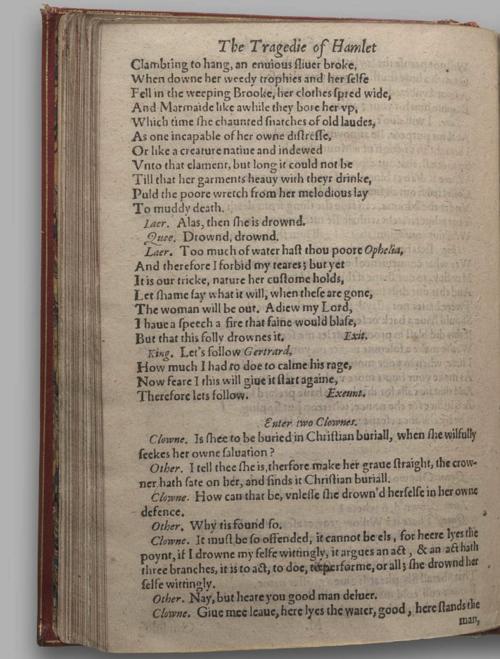 The Tragedie of Hamlet
Clambring to hang, an enuious sliuer broke,
When downe her weedy trophies and her selfe
Fell in the weeping Brooke, her clothes spred wide,
And Marmaide like awhile they bore her vp,
Which time she chaunted snatches of old laudes,
As one incapable of her owne distresse,
Or like a creature natiue and indewed
Vnto that elament, but long it could not be
Till that her garments heauy with theyr drinke,
Puld the poore wretch from her melodious lay
To muddy death.
Laer. Alas, then she is drownd.
Quee. Drownd, drownd.
Laer. Too much of water hast thou poore Ophelia,
And therefore I forbid my teares; but yet
It is our tricke, nature her custome holds,
Let shame say what it will, when these are gone,
The woman will be out. Adiew my Lord,
I haue a speech a fire that faine would blase,
But that this folly drownes it. Exit.
King. Let's follow Gertrard,
How much I had to doe to calme his rage,
Now feare I this will giue it start againe,
Therefore lets follow. Exeunt.
Enter two Clownes.
Clowne. Is shee to be buried in Christian buriall, when she wilfully
seekes her owne saluation?
Other. I tell thee she is, therfore make her graue straight, the crow-
ner hath sate on her, and finds it Christian buriall.
Clowne. How can that be, vnlesse she drown'd herselfe in her owne
defence.
Other. Why tis found so.
Clowne. It must be so offended, it cannot be els, for heere lyes the
poynt, if I drowne my selfe wittingly, it argues an act, & an act hath
three branches, it is to act, to doe, to performe, or all; she drownd her
selfe wittingly.
Other. Nay, but heare you good man deluer.
Clowne. Giue mee leaue, here lyes the water, good, here stands the
man,